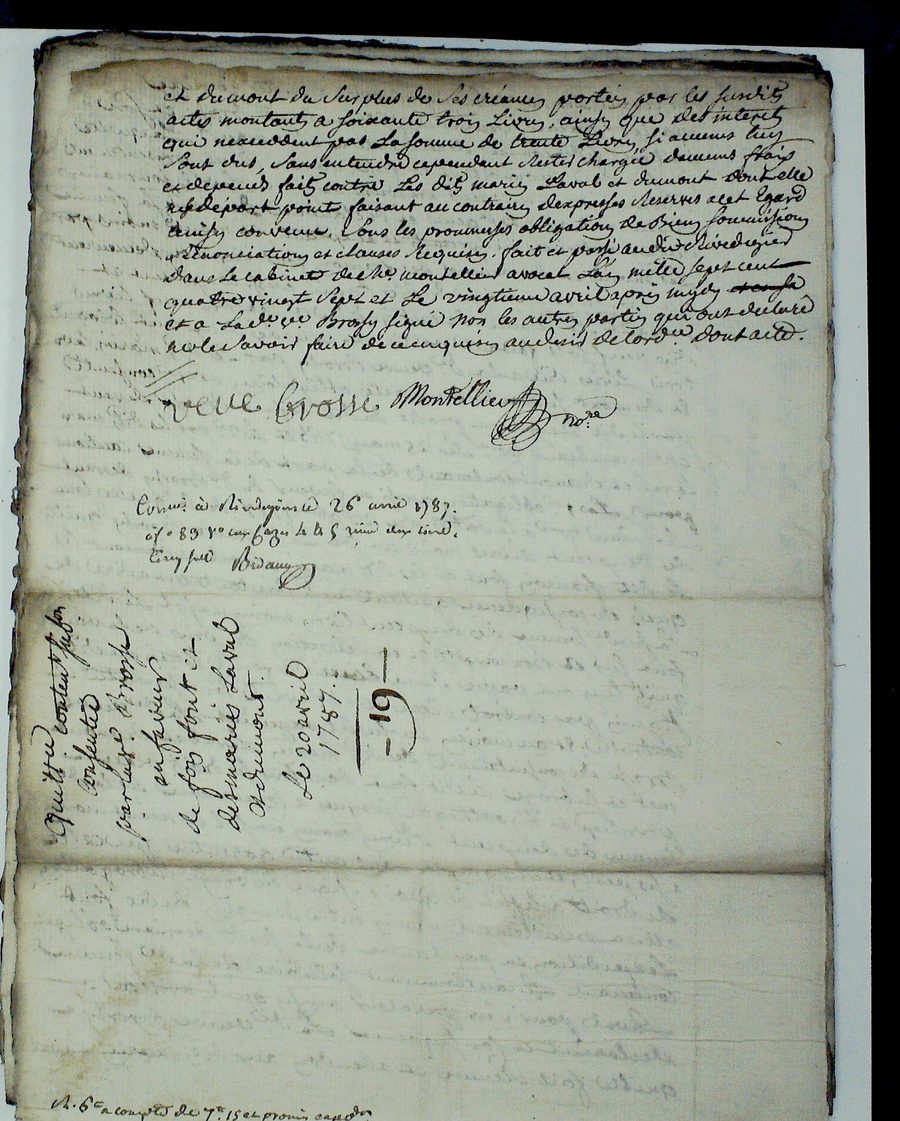 et dumont du surplus de ses créances portées par les susdits
actes montants a soixante trois Livres, ainsy que des interets
qui nexcedent pas La somme de trente Livres, si aucuns luy
sont dus, sans entendre cependant rester chargée daucuns frais
et depends faits contre Les dits mariés Laval et dumont dont elle
ne depart point faisant au contraire dexpresses Reserves a cet Egard
ainsy convenu, sous les promesses obligation de Biens soumissions
Renonciations et clauses Requises, fait et passé audit
Dans Le cabinet de Me montellier avocat L'an mille sept cent
quatre vingt sept et Le vingtieme avril après mydy
et a La de ve Brosse signé non les autres parties qui ont declaré
ne le savoir faire de ce enquises au desir de Lordce dont acte.
veuve brosse Montellier nore
à 26 avril 1787.
fo 83 Vo
Quittce
consentie
par la ve Brosse
en faveur
de
des mariés Laval
et dumont.
Le 20 avril
1787.
19
a compte de 7